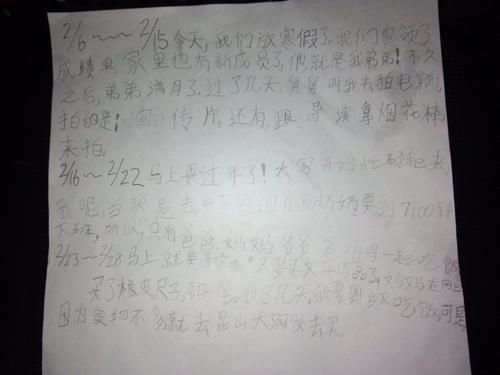 2/6～～2/15今天,我们放寒假了.我们也领了
成绩单 家里也有新成员了,他就是我弟弟!不久
之后,弟弟满月了.过了几天,舅舅叫我去拍电影,
拍的是:宣传片.还有,跟导演拿烟花棒
来拍.
2/16～2/22马上要过年了!大家开始忙碌起来,
我呢,当然是去 奶奶要到7:00钟
下班,所以,只有爸爸妈妈爷爷老祖母一起吃饭
2/23～2/28马上就要开学 又要买文具用品了,奶奶
买了橡皮,尺子, 过了几天我要到 吃饭,可是
因为食物不多,就去昆山大润发去买.